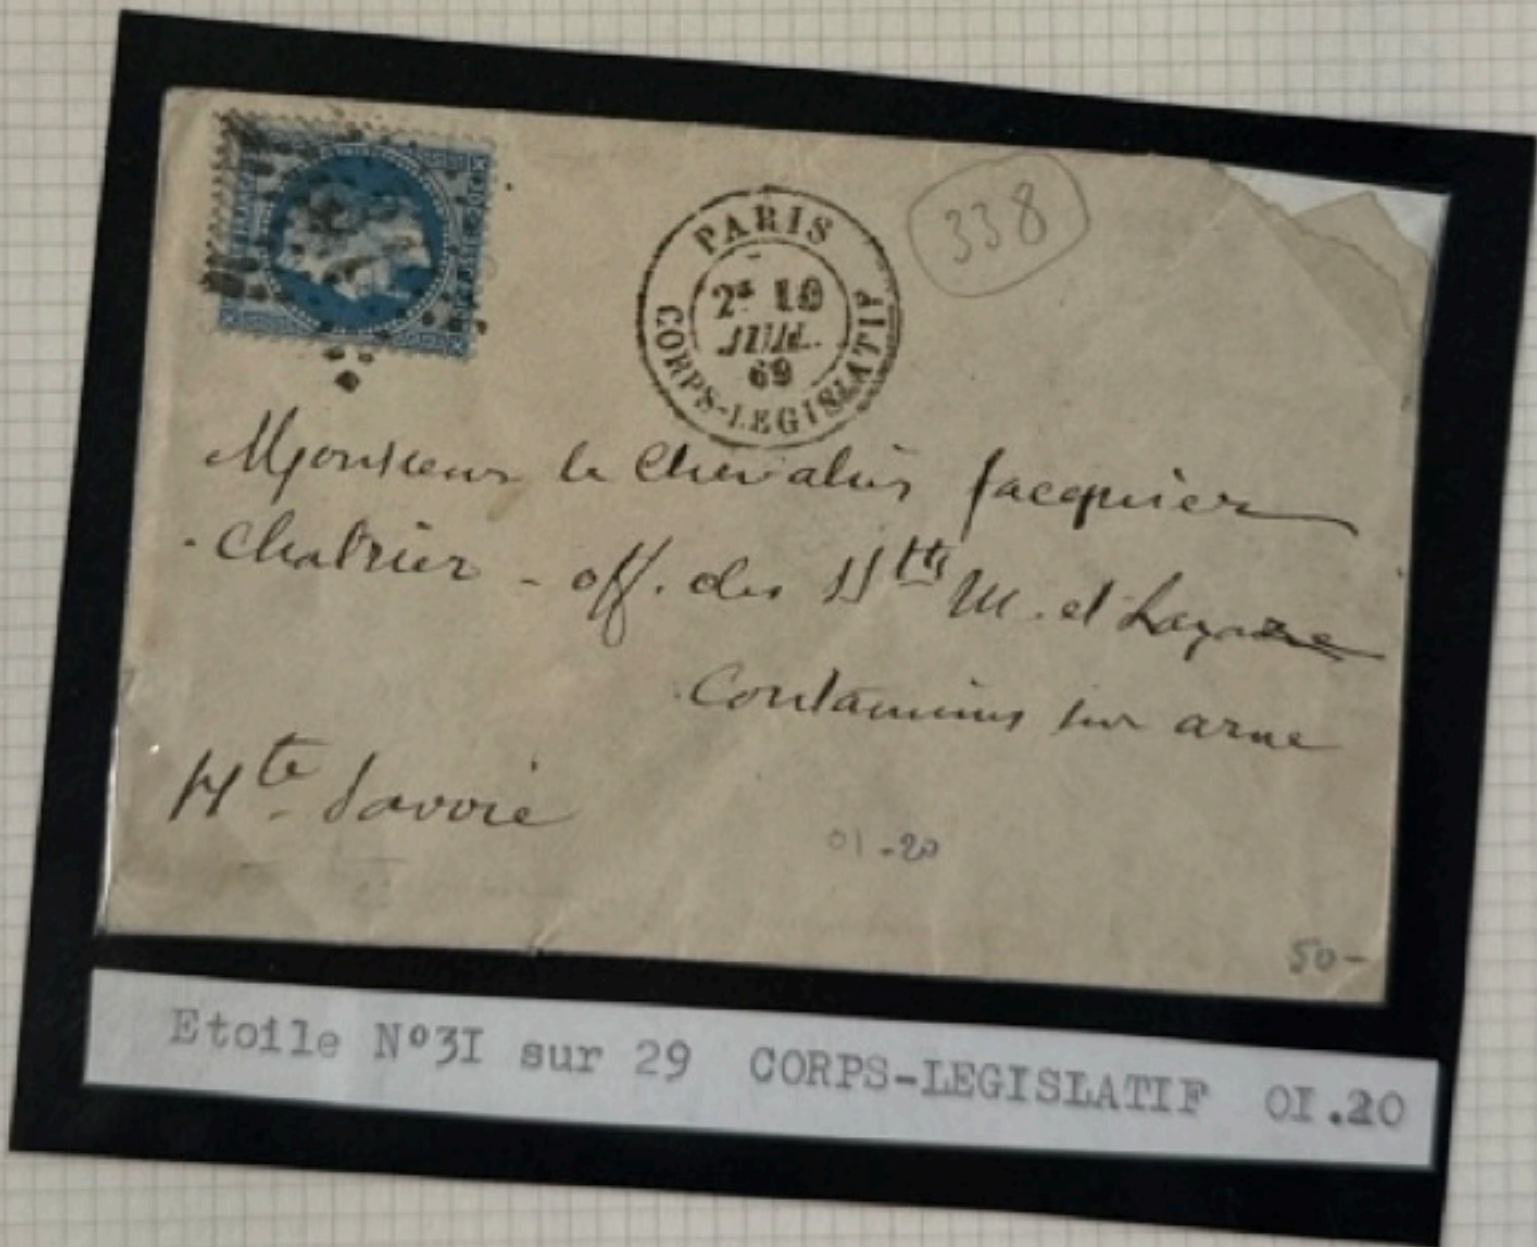 PARIS
2ᵉ 19
JUIL.
69
CORPS-LEGISLATIF
338
Monsieur le Chevalier Jacquier
-Chatrier - off. des SSts M. et Lazare
Contamines sur arve
Hte Savoie
01-20
50-
Etoile N°3I sur 29 CORPS-LEGISLATIF OI.20